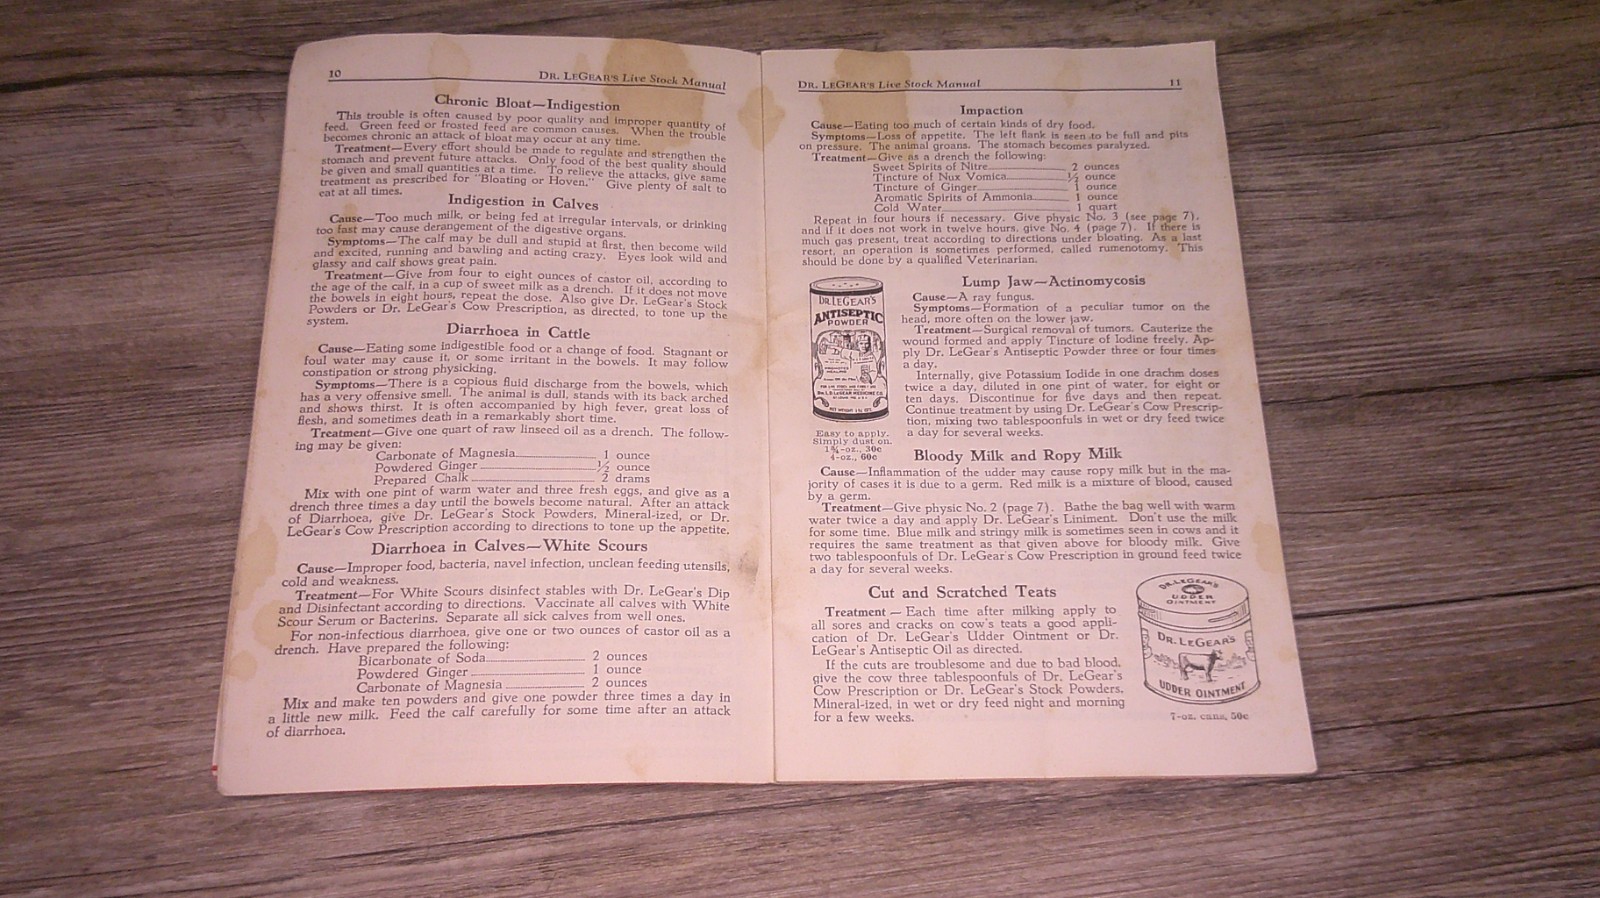 10
DR. LEGEAR'S Live Stock Manual
Chronic Bloat—Indigestion
This trouble is often caused by poor quality and improper quantity of
feed. Green feed or frosted feed are common causes. When the trouble
becomes chronic an attack of bloat may occur at any time.
Treatment—Every effort should be made to regulate and strengthen the
stomach and prevent future attacks. Only food of the best quality should
be given and small quantities at a time. To relieve the attacks, give same
treatment as prescribed for "Bloating or Hoven." Give plenty of salt to
eat at all times.
Indigestion in Calves
Cause—Too much milk, or being fed at irregular intervals, or drinking
too fast may cause derangement of the digestive organs.
Symptoms—The calf may be dull and stupid at first, then become wild
and excited, running and bawling and acting crazy. Eyes look wild and
glassy and calf shows great pain.
Treatment—Give from four to eight ounces of castor oil, according to
the age of the calf, in a cup of sweet milk as a drench. If it does not move
the bowels in eight hours, repeat the dose. Also give Dr. LeGear's Stock
Powders or Dr. LeGear's Cow Prescription, as directed, to tone up the
system.
Diarrhoea in Cattle
Cause—Eating some indigestible food or a change of food. Stagnant or
foul water may cause it, or some irritant in the bowels. It may follow
constipation or strong physicking.
Symptoms—There is a copious fluid discharge from the bowels, which
has a very offensive smell. The animal is dull, stands with its back arched
and shows thirst. It is often accompanied by high fever, great loss of
flesh, and sometimes death in a remarkably short time.
Treatment—Give one quart of raw linseed oil as a drench. The follow-
ing may be given:
Carbonate of Magnesia 1 ounce
Powdered Ginger ½ ounce
Prepared Chalk 2 drams
Mix with one pint of warm water and three fresh eggs, and give as a
drench three times a day until the bowels become natural. After an attack
of Diarrhoea, give Dr. LeGear's Stock Powders, Mineral-ized, or Dr.
LeGear's Cow Prescription according to directions to tone up the appetite.
Diarrhoea in Calves—White Scours
Cause—Improper food, bacteria, navel infection, unclean feeding utensils,
cold and weakness.
Treatment—For White Scours disinfect stables with Dr. LeGear's Dip
and Disinfectant according to directions. Vaccinate all calves with White
Scour Serum or Bacterins. Separate all sick calves from well ones.
For non-infectious diarrhoea, give one or two ounces of castor oil as a
drench. Have prepared the following:
Bicarbonate of Soda 2 ounces
Powdered Ginger 1 ounce
Carbonate of Magnesia 2 ounces
Mix and make ten powders and give one powder three times a day in
a little new milk. Feed the calf carefully for some time after an attack
of diarrhoea.
DR. LEGEAR'S Live Stock Manual
11
Impaction
Cause—Eating too much of certain kinds of dry food.
Symptoms—Loss of appetite. The left flank is seen to be full and pits
on pressure. The animal groans. The stomach becomes paralyzed.
Treatment—Give as a drench the following:
Sweet Spirits of Nitre 2 ounces
Tincture of Nux Vomica ½ ounce
Tincture of Ginger 1 ounce
Aromatic Spirits of Ammonia 1 ounce
Cold Water 1 quart
Repeat in four hours if necessary. Give physic No. 3 (see page 7),
and if it does not work in twelve hours, give No. 4 (page 7). If there is
much gas present, treat according to directions under bloating. As a last
resort, an operation is sometimes performed, called rumenotomy. This
should be done by a qualified Veterinarian.
DR. LEGEAR'S
ANTISEPTIC
POWDER
Easy to apply.
Simply dust on.
1¾-oz., 30c
4-oz., 60c
Lump Jaw—Actinomycosis
Cause—A ray fungus.
Symptoms—Formation of a peculiar tumor on the
head, more often on the lower jaw.
Treatment—Surgical removal of tumors. Cauterize the
wound formed and apply Tincture of Iodine freely. Ap-
ply Dr. LeGear's Antiseptic Powder three or four times
a day.
Internally, give Potassium Iodide in one drachm doses
twice a day, diluted in one pint of water, for eight or
ten days. Discontinue for five days and then repeat.
Continue treatment by using Dr. LeGear's Cow Prescrip-
tion, mixing two tablespoonfuls in wet or dry feed twice
a day for several weeks.
Bloody Milk and Ropy Milk
Cause—Inflammation of the udder may cause ropy milk but in the ma-
jority of cases it is due to a germ. Red milk is a mixture of blood, caused
by a germ.
Treatment—Give physic No. 2 (page 7). Bathe the bag well with warm
water twice a day and apply Dr. LeGear's Liniment. Don't use the milk
for some time. Blue milk and stringy milk is sometimes seen in cows and it
requires the same treatment as that given above for bloody milk. Give
two tablespoonfuls of Dr. LeGear's Cow Prescription in ground feed twice
a day for several weeks.
Cut and Scratched Teats
Treatment — Each time after milking apply to
all sores and cracks on cow's teats a good appli-
cation of Dr. LeGear's Udder Ointment or Dr.
LeGear's Antiseptic Oil as directed.
If the cuts are troublesome and due to bad blood,
give the cow three tablespoonfuls of Dr. LeGear's
Cow Prescription or Dr. LeGear's Stock Powders,
Mineral-ized, in wet or dry feed night and morning
for a few weeks.
DR. LEGEAR'S
UDDER
OINTMENT
DR. LEGEAR'S
UDDER OINTMENT
7-oz. cans, 50c